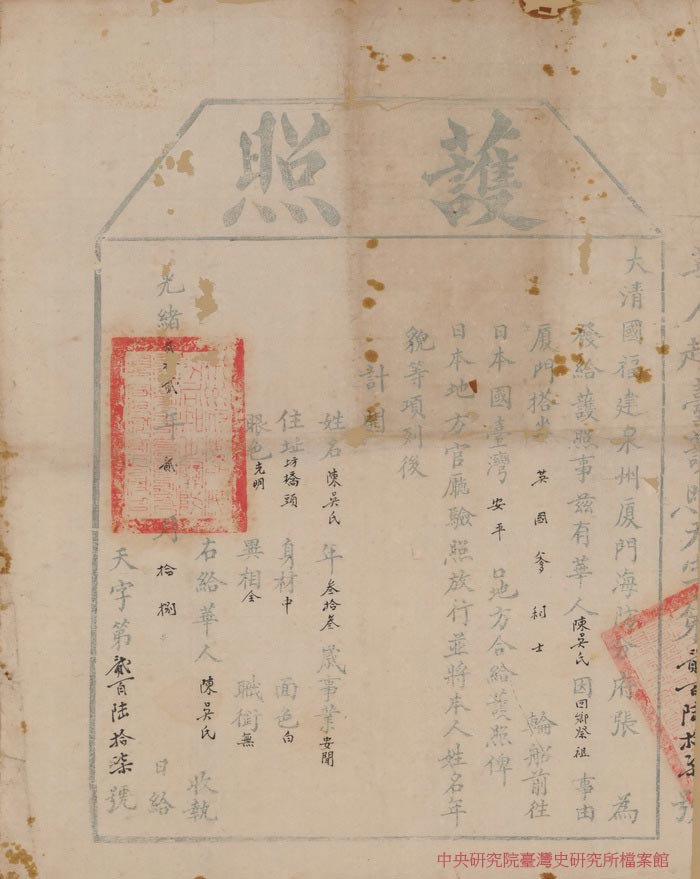 護照
大清國福建泉州廈門海防分府張 為
發給護照事茲有華人陳吳氏因回鄉祭祖事由
厦門搭坐 英國爹利士 輪船前往
日本國臺灣 安平 口地方合給護照俾
日本地方官廳驗照放行並將本人姓名年
貌等項列後
計開
姓名陳吳氏 年叁拾叁歲事業安閒
住址 橋頭 身材中 面色白
眼色光明 異相全 職銜無
右給華人 陳吳氏 收執
光緒 貳年 貳月 拾捌 日給
天字第貳百陸拾柒號
貳百陸拾柒號
中央研究院臺灣史研究所檔案館